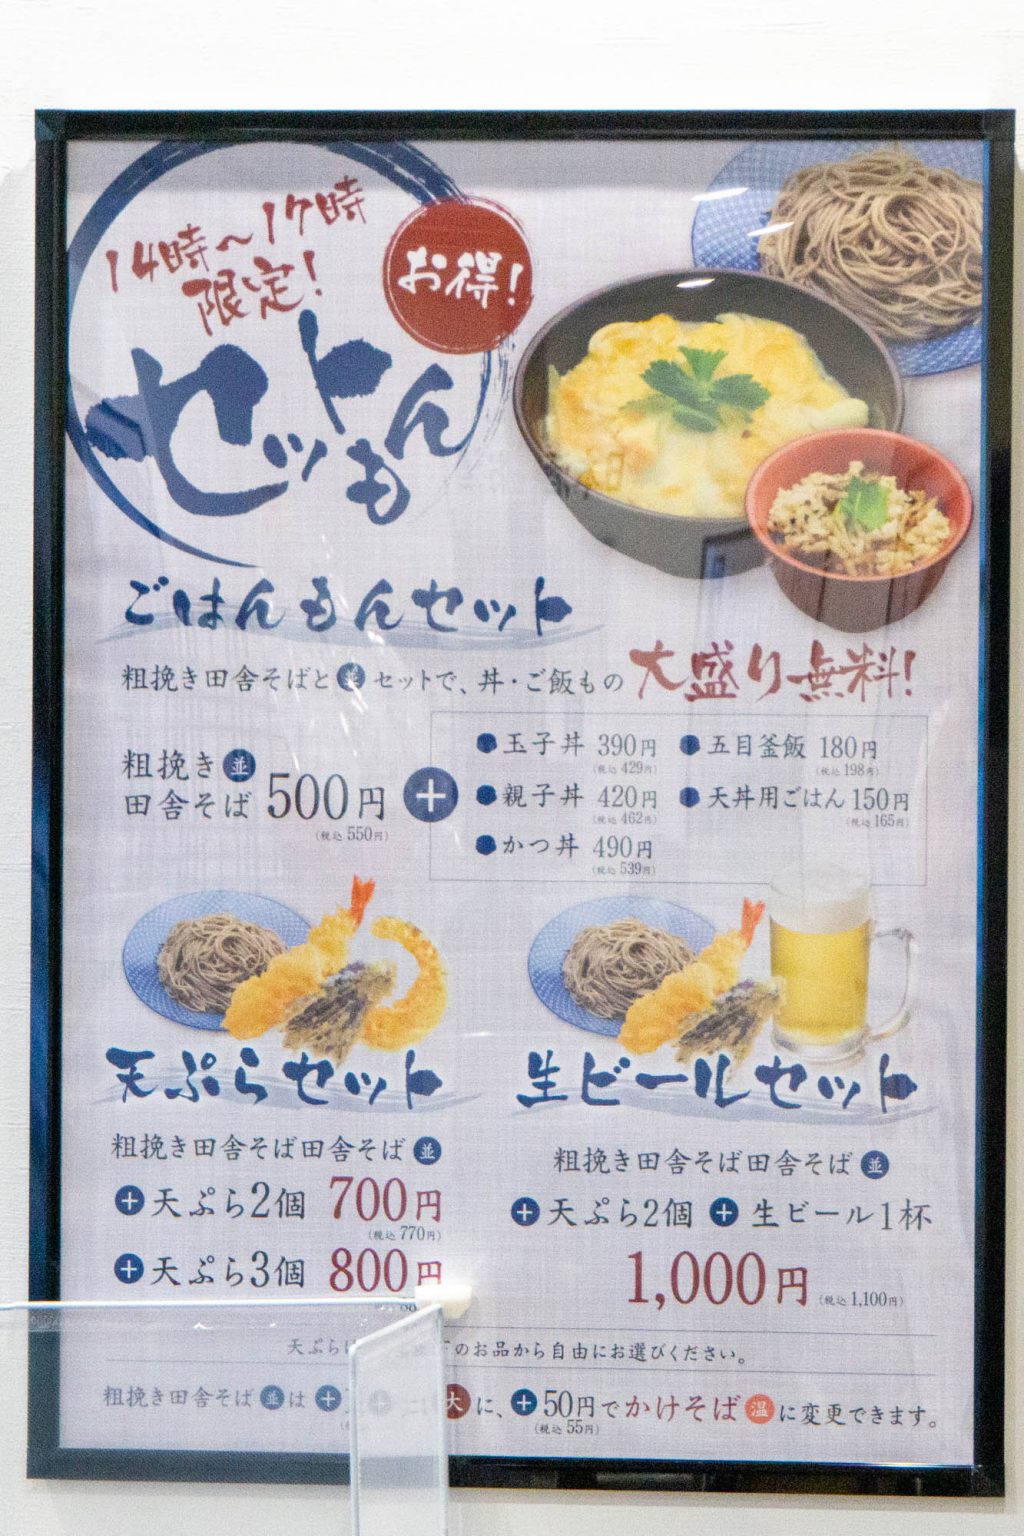 14時～17時
限定!
お得!
セットもん
ごはんもんセット
粗挽き田舎そばと並セットで、丼・ご飯もの 大盛り無料!
粗挽き並
田舎そば 500円
(税込 550円)
+
●玉子丼 390円
(税込 429円)
●親子丼 420円
(税込 462円)
●かつ丼 490円
(税込 539円)
●五目釜飯 180円
(税込 198円)
●天丼用ごはん 150円
(税込 165円)
天ぷらセット
粗挽き田舎そば田舎そば 並
+天ぷら2個 700円
(税込 770円)
+天ぷら3個 800円
生ビールセット
粗挽き田舎そば田舎そば 並
+天ぷら2個 +生ビール1杯
1,000円 (税込 1,100円)
天ぷら のお品から自由にお選びください。
粗挽き田舎そば 並 は + 大 に、+50円でかけそば 温 に変更できます。
(税込 55円)